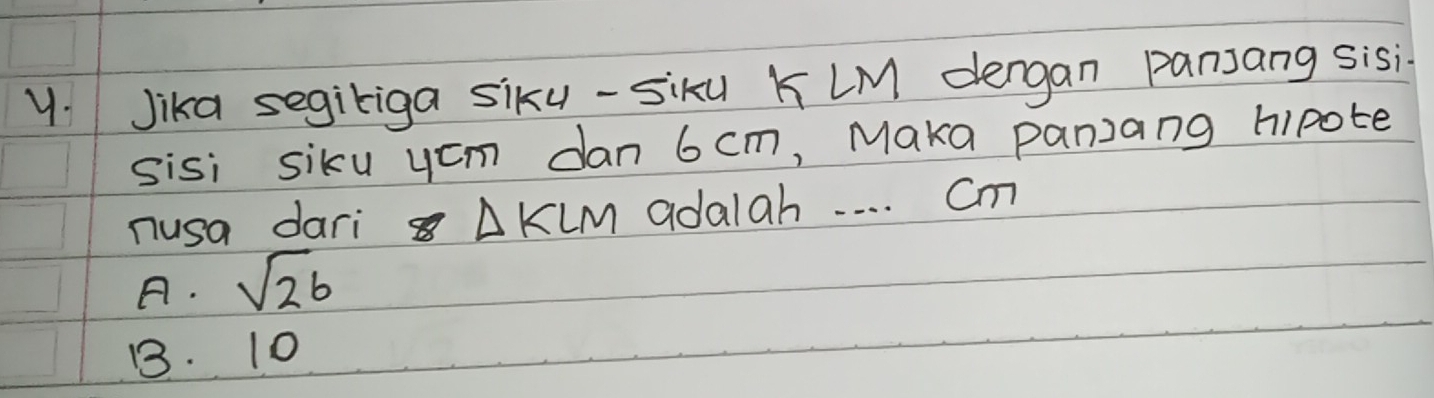 4. Jika segitiga siku - siku KLM dengan panjang sisi-
sisi siku 4cm dan 6 cm, Maka panjang hipote
nusa dari ΔKLM adalah .... Cm
A. √26
B. 10